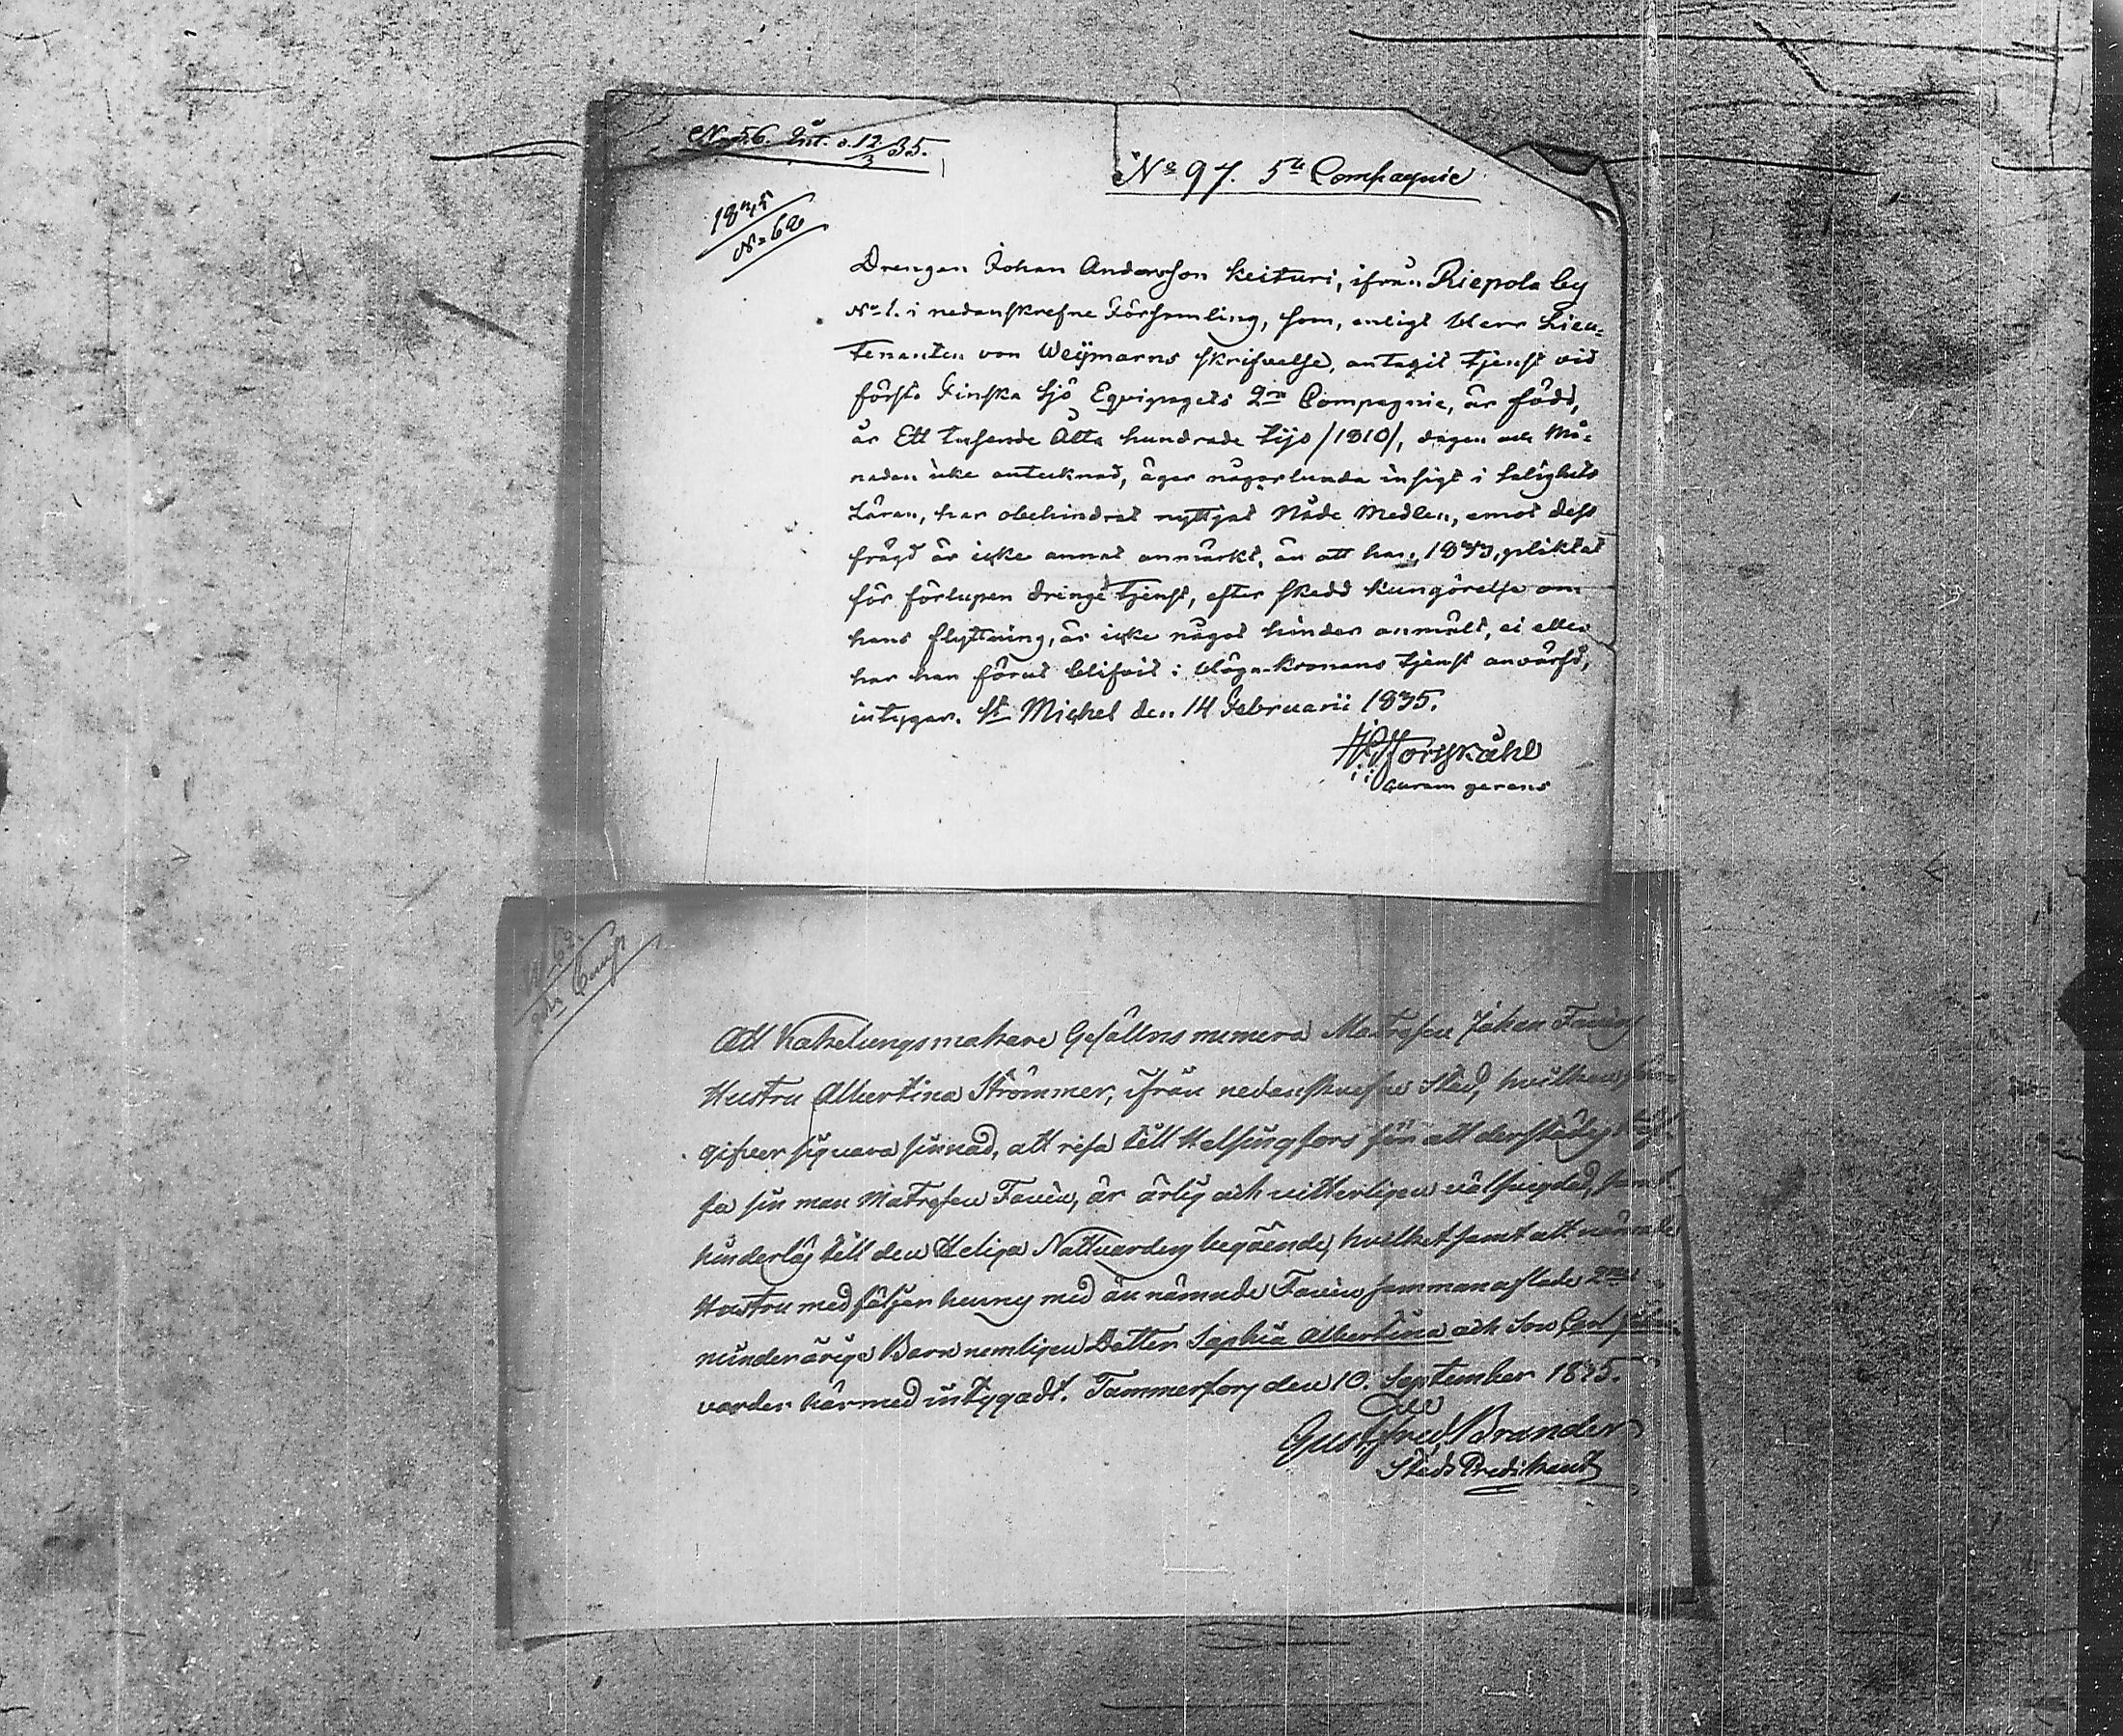 No 56. Int. d. 12/3 35.
No 97. 5te Compagnie
1835
No 62
Drengen Johan Andersson Keituri, ifrån Riepola by
No 1. i nedanskrefne Församling, som, enligt Herr Lieu-
tenanten von Weymarns skrifvelse, antagit tjenst vid
första Finska Sjö Equipagets 2ra Compagnie, är född,
år Ett tusende Åtta hundrade tijo /1810/, dagen och Må-
naden icke antecknad, äger någorlunda insigt i Salighets
Läran, har obehindrat nyttjat Nåde Medlen, emot dess
frägd är icke annat anmärkt, än att han, 1833, pliktat
för förlupen drenge tjenst, efter skedd kungörelse om
hans flyttning, är icke något hinder anmält, ei eller
har han förut blifvit i Höga Kronans tjenst anvärfd,
intygar. St Michel den 14 Februarii 1835.
Forsskåhl
Curam gerens
No 62.
Comp
Att Kakelungsmakare Gesällens numera Matrosen Johan Favins
Hustru Albertina Strömmer, ifrån nedanskrefne Stad, hvilken
gifver sig vara sinnad, att resa till Helsingfors för att derstädes
sa sin man Matrosen Favin, är ärlig och vitterligen välfrejdad, samt
hinderlös till den Heliga Nattvardens begående, hvilket samt att nämnde
Hustru medföljer hennes med än nämnde Favin sammanaflade 2ne
minderåriga Barn nemligen Dotter Sophia Albertina och Son Carl Johan
varder härmed intygadt. Tammerfors den 10. September 1835.
Gust. Fred. Brander
Stads Predikant